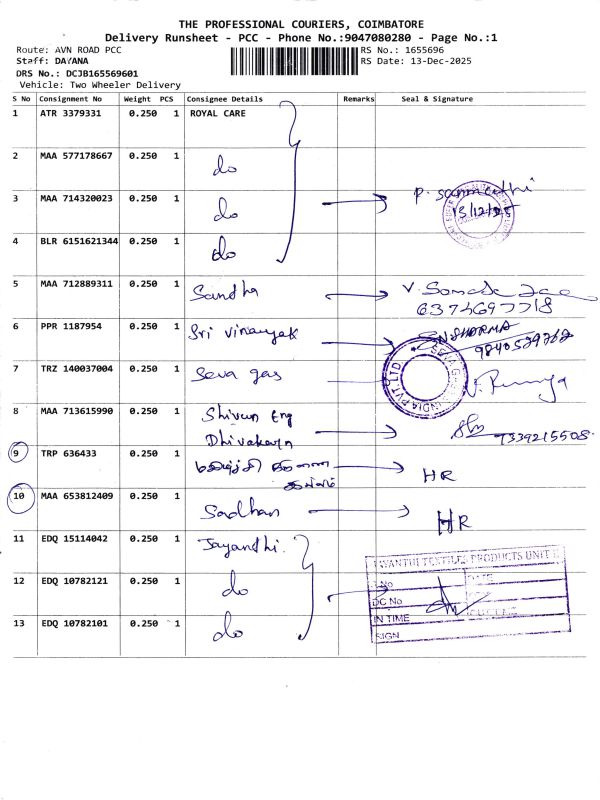 THE PROFESSIONAL COURIERS, COIMBATORE
Delivery Runsheet - PCC - Phone No.:9047080280 - Page No.:1
Route: AVN ROAD PCC RS No.: 1655696
Staff: DAYANA RS Date: 13-Dec-2025
DRS No.: DCJB165569601
Vehicle: Two Wheeler Delivery
S No Consignment No Weight PCS Consignee Details Remarks Seal & Signature
1 ATR 3379331 0.250 1 ROYAL CARE
2 MAA 577178667 0.250 1 do
3 MAA 714320023 0.250 1 do
13/12/25
4 BLR 6151621344 0.250 1 do
5 MAA 712889311 0.250 1 Sandha
6374697718
6 PPR 1187954 0.250 1 Sri Vinayak SNSHARMA
9840529762
7 TRZ 140037004 0.250 1 Seva gas
INDIA PVT LTD
8 MAA 713615990 0.250 1 Shivun Eng
Dhivakarn 7339215508
9 TRP 636433 0.250 1 HR
10 MAA 653812409 0.250 1 Sadhan HR
11 EDQ 15114042 0.250 1 Jayanthi.
TEXTILE PRODUCTS UNIT II
12 EDQ 10782121 0.250 1 do
DATE
DC No
13 EDQ 10782101 0.250 1 do
IN TIME
SIGN